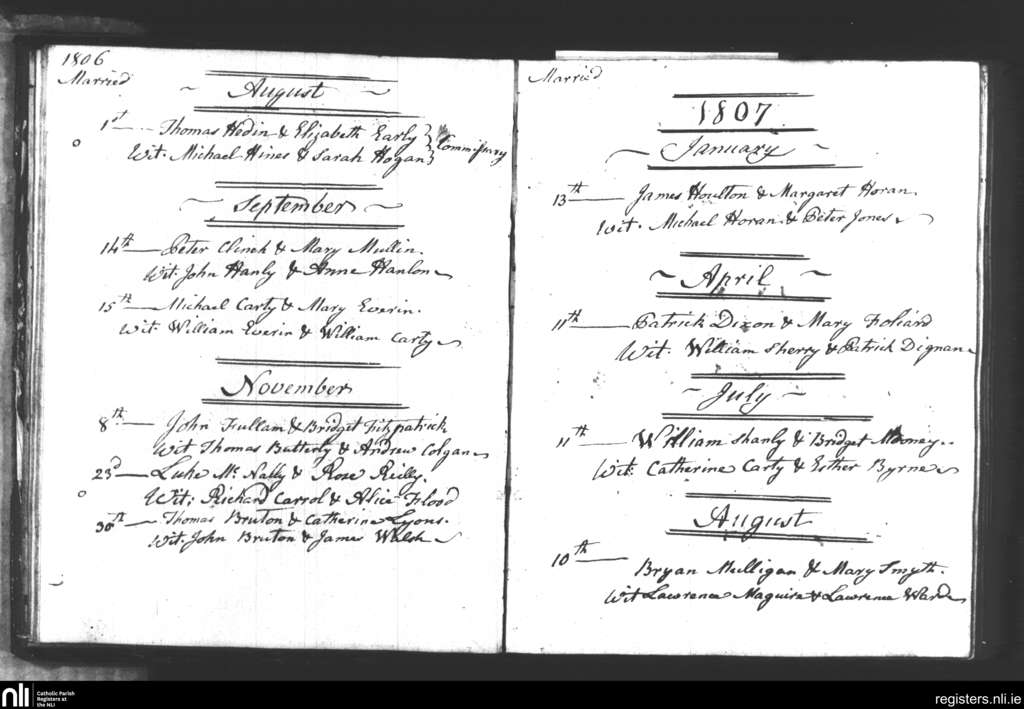 1806
Married
August
1st Thomas Hedin & Elizabeth Early
Wit. Michael Hines & Sarah Hogan
Commissary
September
14th Peter Clinch & Mary Mullin.
Wit. John Hanly & Anne Hanlon
15th Michael Carty & Mary Everin.
Wit. William Everin & William Carty
November
8th John Fullam & Bridget Fitzpatrick
Wit Thomas Butterly & Andrew Colgan
23d Luke Mc. Nally & Rose Reilly.
Wit; Richard Carrol & Alice Flood
30th Thomas Bruton & Catherine Lyons.
Wit. John Bruton & James Walsh
Married
1807
January
13th James Houlton & Margaret Horan.
Wit. Michael Horan & Peter Jones
April
11th Patrick Dixon & Mary Foliard
Wit. William Sherry & Patrick Dignan
July
11th William Shanly & Bridget Mooney.
Wit. Catherine Carty & Esther Byrne
August
10th Bryan Mulligan & Mary Smyth.
Wit Lawrence Maguire & Lawrence Ward
nli Catholic Parish
Registers at
the NLI
registers.nli.ie